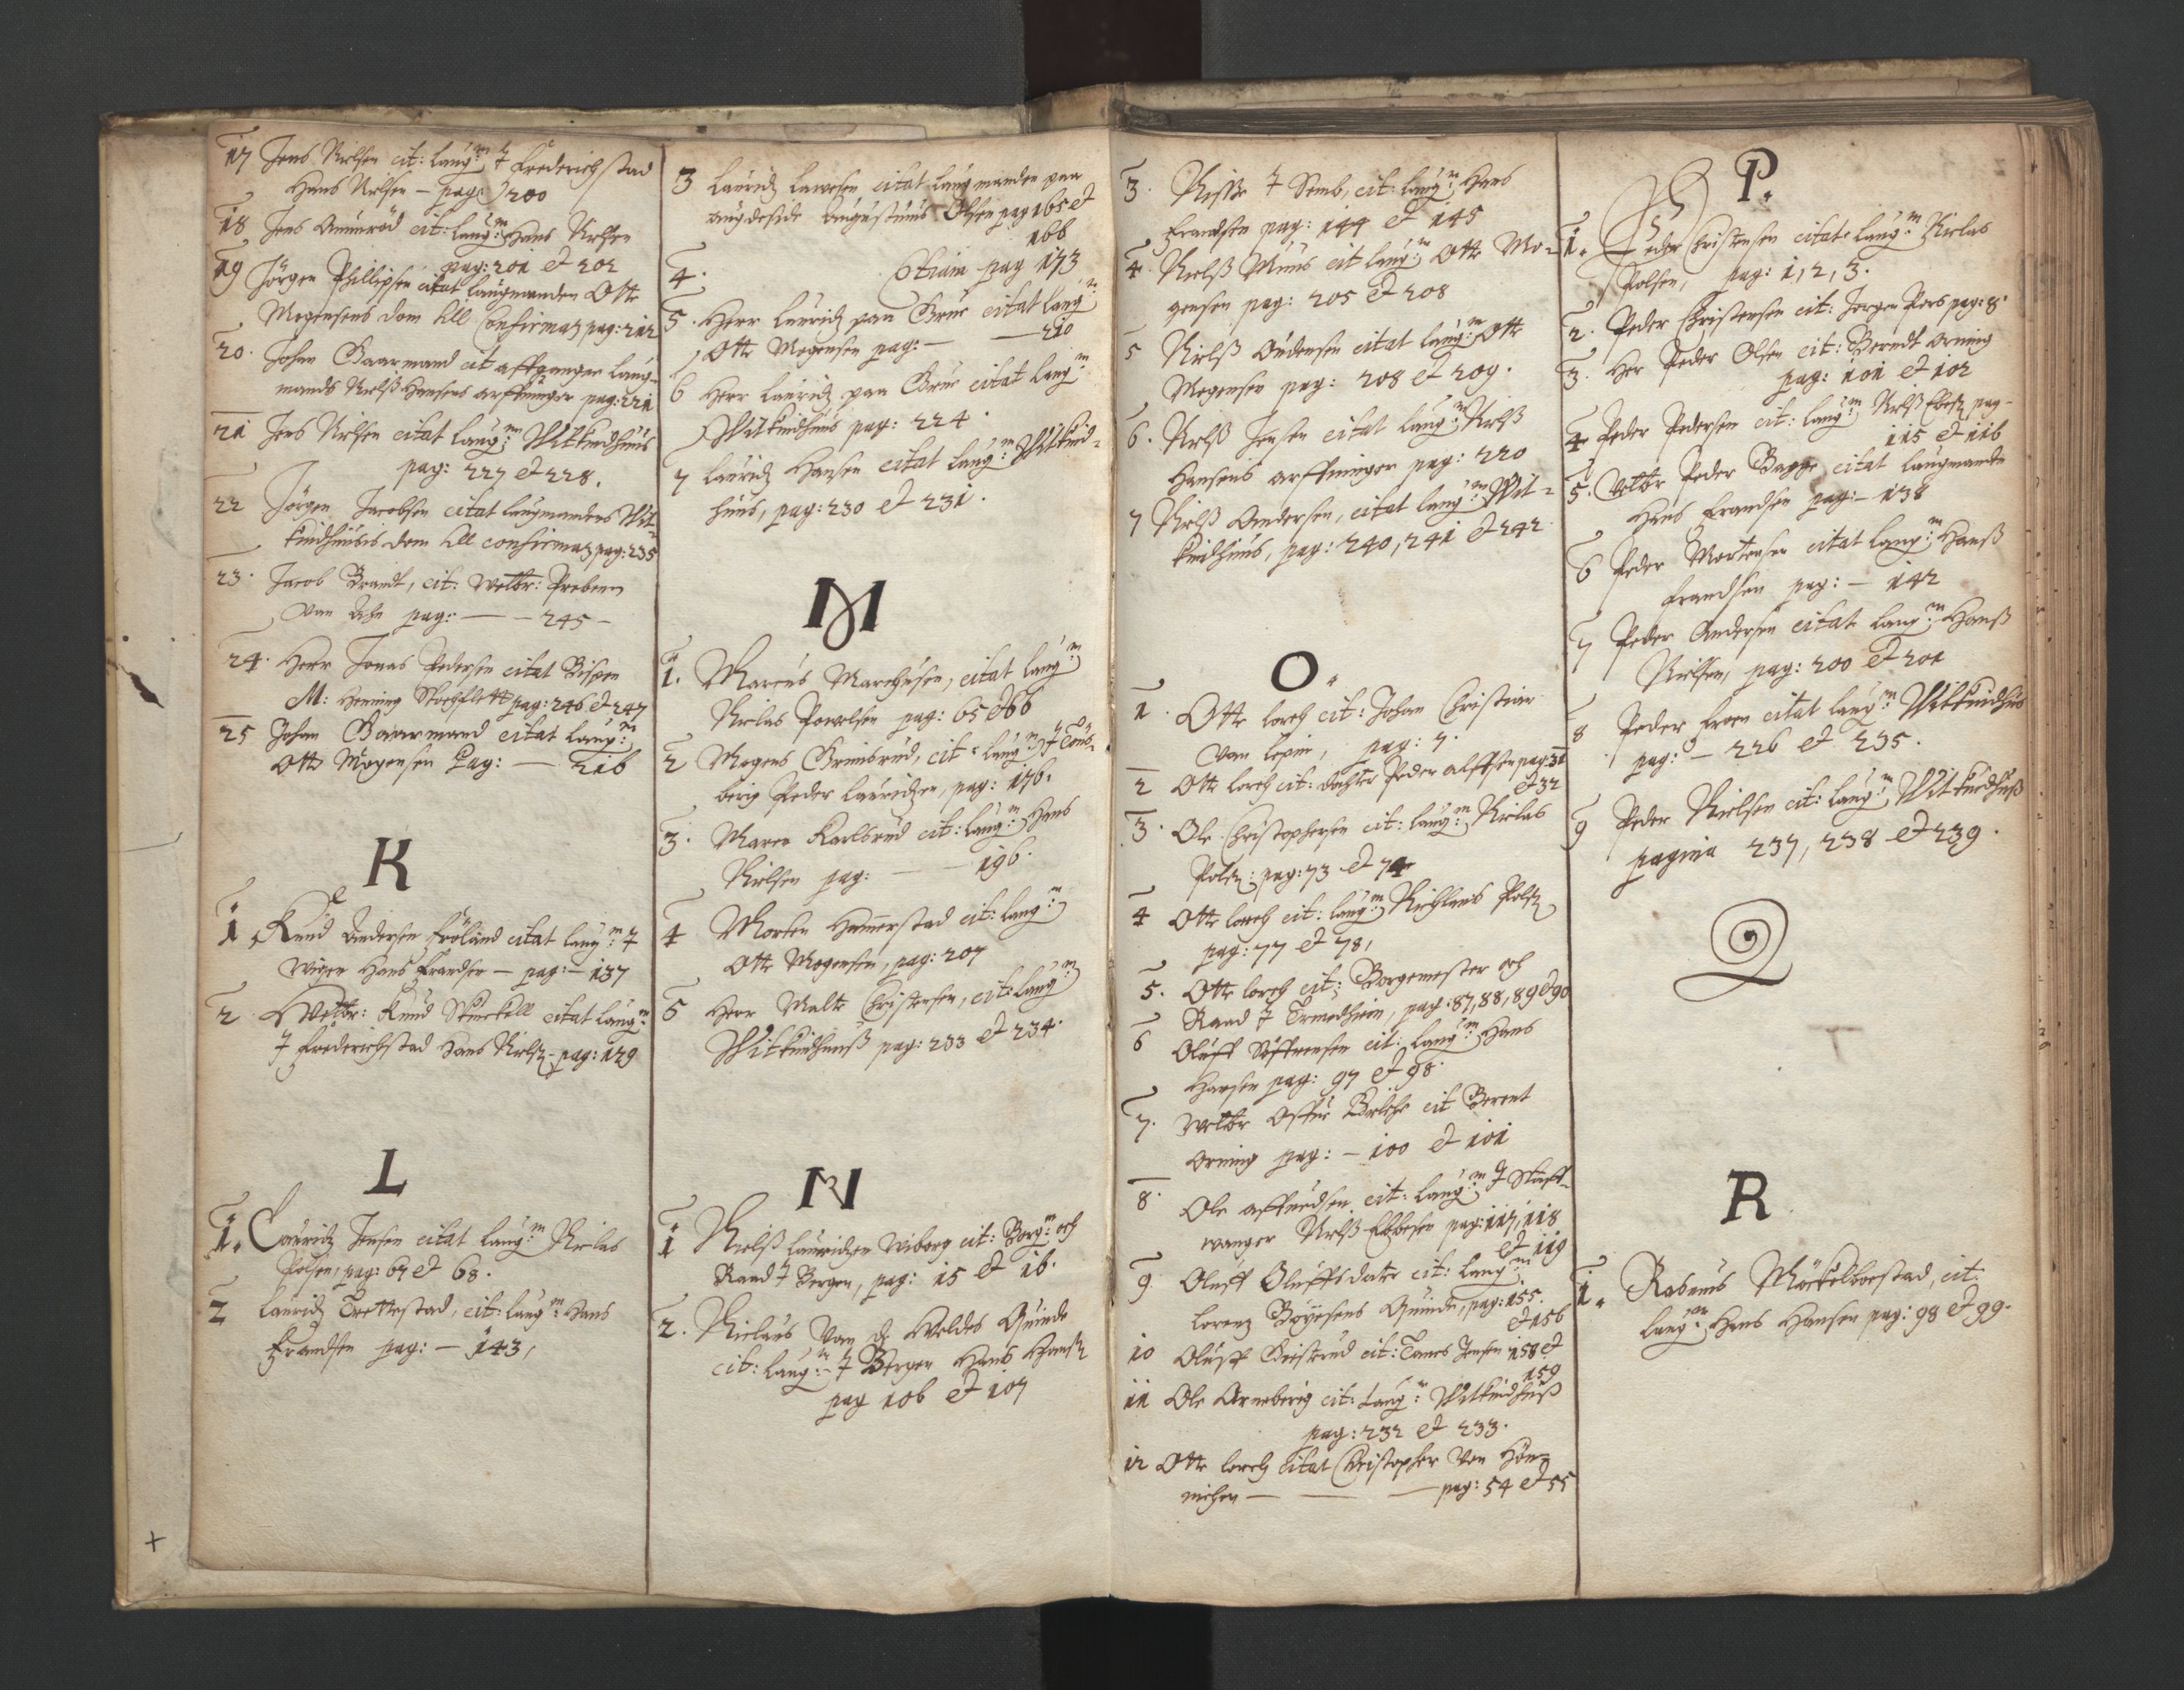 17 Jens Nielsen cit: laug:m J Frederichstad
Hans Nielsen – pag: 200
18 Jens Aunnröd cit: laug:m Hans Nielsen
pag: 201 et 202
19 Jörgen Phillipsen citat laugmanden Otte
Mogensens dom till Confirmaz pag: 212
20. Johan Gaarmand cit affgangen laug-
mands Nielß Hansens arffuinger pag: 221
21 Jens Nielsen citat laug:m Witkindhuus
pag: 227 et 228.
22 Jörgen Jacobsen citat laugmandens Wit-
kindhuusis dom till confirmaz pag: 235
23. Jacob Brandt, cit: Welbr: Preben
von Ahn pag: – – 245 –
24. Herr Jonas Pedersen citat Bispen
M: Henning Stochflett pag: 246 et 247
25 Johan Gaarmand citat laug:m
Otte Mogensen Pag: – 216
K
1. Knud Andersen Fröland citat laug:m J
Wigen Hans Frandsen – pag: – 137
2. Welbr: Knud citat laug:m
J Frederichstad Hans Nielsz – pag: 129
L
1. Lauridz Jensen citat laug:m Niclas
Polsen, pag: 67 et 68.
2 Lauridz Trettestad, cit: laug:m Hans
Frandsen pag: – 143,
3 Lauridz Lawesen citat laugmanden paa
Augdeside Augustinus Olsen pag 165 et
166
4. Etiam pag 173
5. Herr Lauridz paa Grue citat laug:m
Otte Mogensen pag: – – 210
6 Herr Lauridz paa Grue citat laug:m
Witkindhuus pag: 224.
7 Lauridz Hansen citat laug:m Witkind-
huus, pag: 230 et 231.
M
1. Marcus Marchusen, citat laug:m
Niclas Powelsen pag: 65 et 66
2 Mogens Grimsrud, cit: laug:m J Tons-
berig Peder Lauridzen, pag: 176.
3. Maren Karlsrud cit: laug:m Hans
Nielsen pag: – 196.
4 Morten Hamerstad cit: laug:m
Otte Mogensen, pag: 207
5 Herr Malte Christensen, cit: laug:m
Witkindhuuß pag: 233 et 234.
N
1 Nielß Lauridzen Wiborg cit: Borg:m och
Raad J Bergen, pag: 15 et 16.
2. Niclaus Von de Weldes Quinde
cit: laug:m J Bergen Hans Hansz
pag 106 et 107
3. Nisse J Semb, cit: laug:m Hans
Frandsen pag: 144 et 145
4. Nielß Muus cit laug:m Otte Mo-
gensen pag: 205 et 208
5 Nielß Audensen citat laug:m Otte
Mogensen pag: 208 et 209.
6. Nielß Jensen citat laug:m Nielß
Hansens arffuinger pag: 220
7 Nielß Andersen, citat laug:m Wit-
kindhuus, pag: 240, 241 et 242
O.
1. Otte Lorch cit: Johan Christian
von Lepin, pag: 7.
2 Otte Lorch cit: dochter Peder Alffsen pag: 31
et 32
3. Ole Christophersen cit: laug:m Niclas
Polsz: pag: 73 et 74
4 Otte Lorch cit: laug:m Nichlaus Polsz
pag: 77 et 78,
5. Otte Lorch cit: Borgemester och
Raad J Trundhiem, pag: 87, 88, 89 et 90
6 Oluff Söffrensen cit: laug:m Hans
Hansen pag: 97 et 98.
7. Welbr Offue Bielche cit Berent
Orning pag: – 100 et 101
8. Ole Affuedsen cit: laug:m J Staff-
wanger Nielß Ebbesen pag: 117, 118
et 119
9. Oluff Oluffsdater cit: laug:m
Lorenz Boyesens Quinde, pag: 155.
et 156
10 Oluff Geisterud cit: Tanes Jensen 158 et
159
11 Ole Arneberig cit: Laug:m Witkindhuuß
pag: 232 et 233.
12 Otte Lorch citat Christopher Von Hön-
nichen – – – pag: 54 et 55
P.
1. Peder Christensen citat laug:m Niclas
Polsen, pag: 1, 2, 3.
2. Peder Christensen cit: Jorgen Pors pag: 8.
3. Her Peder Olsen cit: Berndt Orning
pag: 101 et 102
4 Peder Pedersen cit: laug:m Nielß Ebesz pag –
115 et 116
5. Welbr Peder Bagge citat laugmanden
Hans Frandsen pag: – 138
6 Peder Mortensen citat laug:m Hanß
Frandsen pag: – 142
7 Peder Andersen citat laug:m Hanß
Nielsen, pag: 200 et 201
8 Peder Froen citat laug:m Witkindhus
pag: – 226 et 235.
9 Peder Nielsen cit: laug:m Witkindhuß
pagina 237, 238 et 239.
Q
R
1. Rasmus Möckelboestad, cit:
laug:m Hans Hansen pag: 98 et 99.